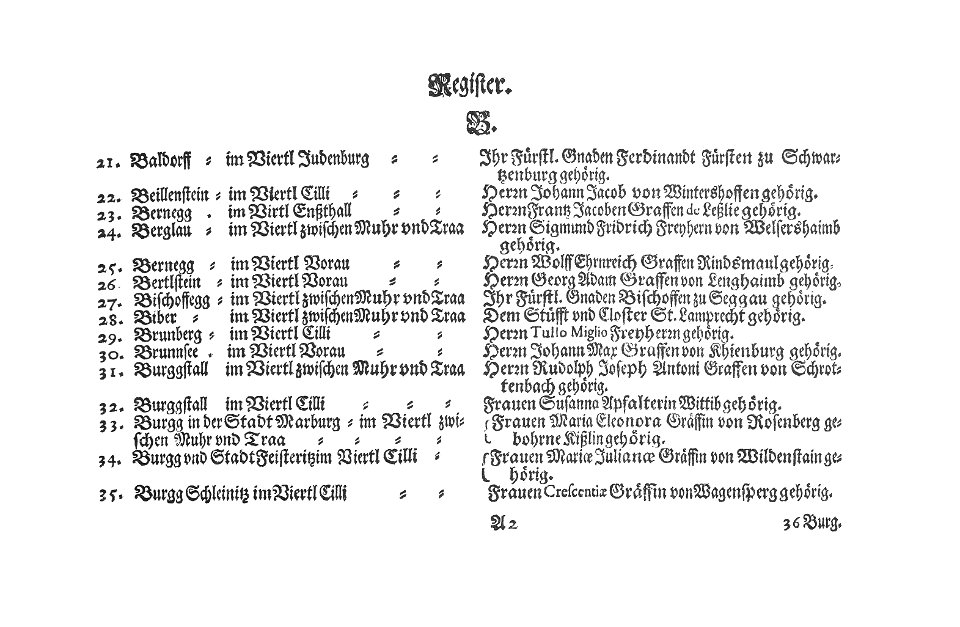 Register.
B.
21. Baldorff ⸗ im Viertl Judenburg ⸗ ⸗ Ihr Fürstl. Gnaden Ferdinandt Fürsten zu Schwar⸗
tzenburg gehörig.
22. Beillenstein ⸗ im Viertl Cilli ⸗ ⸗ ⸗ Herrn Johann Jacob von Wintershoffen gehörig.
23. Bernegg . im Virtl Enßthall ⸗ ⸗ Herrn Frantz Jacoben Graffen de Leßlie gehörig.
24. Berglau ⸗ im Viertl zwischen Muhr vnd Traa Herrn Sigmund Fridrich Freyhern von Welsershaimb
gehörig.
25. Bernegg ⸗ im Viertl Vorau ⸗ ⸗ Herrn Wolff Ehrnreich Graffen Rindsmaul gehörig.
26 Bertlstein ⸗ im Viertl Vorau ⸗ ⸗ Herrn Georg Adam Graffen von Lenghaimb gehörig.
27. Bischoffegg ⸗ im Viertl zwischen Muhr vnd Traa Ihr Fürstl. Gnaden Bischoffen zu Seggau gehörig.
28. Biber ⸗ im Viertl zwischen Muhr vnd Traa Dem Stüfft vnd Closter St. Lamprecht gehörig.
29. Brunberg ⸗ im Viertl Cilli ⸗ ⸗ Herrn Tullo Miglio Freyherrn gehörig.
30. Brunnsee . im Viertl Vorau ⸗ ⸗ Herrn Johann Max Graffen von Khienburg gehörig.
31. Burggstall im Viertl zwischen Muhr vnd Traa Herrn Rudolph Joseph Antoni Graffen von Schrot⸗
tenbach gehörig.
32. Burggstall im Viertl Cilli ⸗ ⸗ ⸗ Frauen Susanna Apfalterin Wittib gehörig.
33. Burgg in der Stadt Marburg ⸗ im Viertl zwi⸗ Frauen Maria Eleonora Gräffin von Rosenberg ge⸗
schen Muhr vnd Traa ⸗ ⸗ ⸗ ⸗ bohrne Kißlin gehörig.
34. Burgg vnd Stadt Feisteritz im Viertl Cilli ⸗ Frauen Mariæ Julianæ Gräffin von Wildenstain ge⸗
hörig.
35. Burgg Schleinitz im Viertl Cilli ⸗ ⸗ Frauen Crescentiæ Gräffin von Wagensperg gehörig.
A 2 36 Burg.